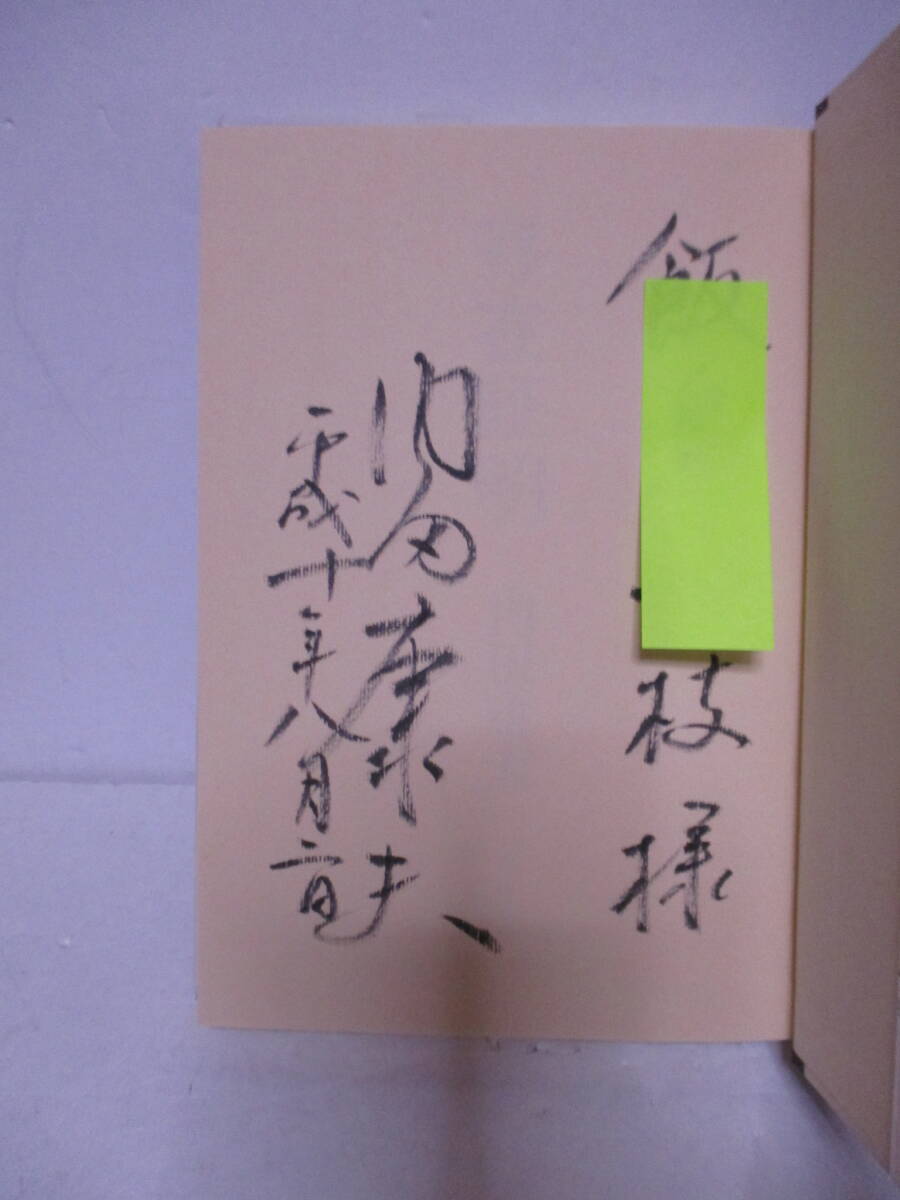 枝様
内田康夫
平成十年八月二日